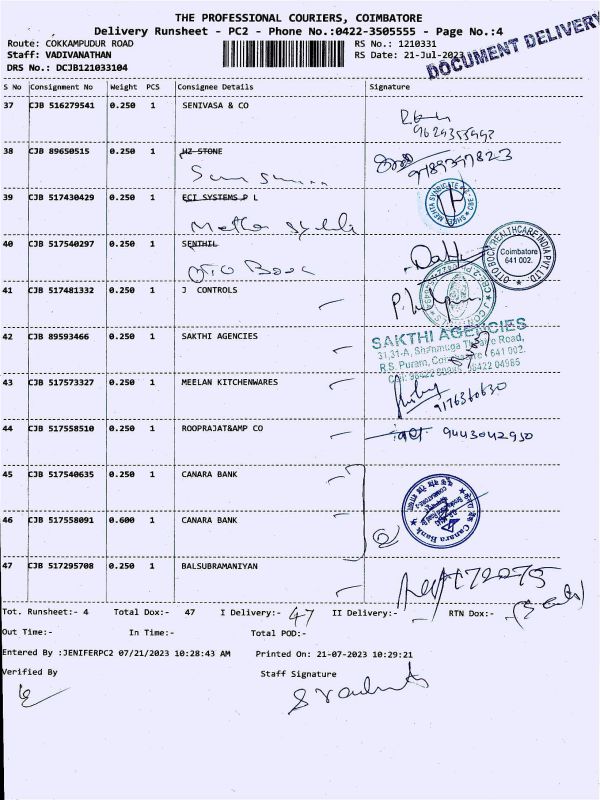 THE PROFESSIONAL COURIERS, COIMBATORE
Delivery Runsheet - PC2 - Phone No.:0422-3505555 - Page No.:4
Route: COKKAMPUDUR ROAD
Staff: VADIVANATHAN
DRS No.: DCJB121033104
RS No.: 1210331
RS Date: 21-Jul-2023
DOCUMENT DELIVERY
S No Consignment No Weight PCS Consignee Details Signature
37 CJB 516279541 0.250 1 SENIVASA & CO
38 CJB 89650515 0.250 1 HZ STONE
39 CJB 517430429 0.250 1 ECI SYSTEMS P L
40 CJB 517540297 0.250 1 SENTHIL
OTTO BOCK HEALTHCARE INDIA PVT. LTD.
Coimbatore
641 002.
41 CJB 517481332 0.250 1 J CONTROLS
42 CJB 89593466 0.250 1 SAKTHI AGENCIES
SAKTHI AGENCIES
31,31-A, Shanmuga Theatre Road,
R.S. Puram, Coimbatore - 641 002.
43 CJB 517573327 0.250 1 MEELAN KITCHENWARES
9176360630
44 CJB 517558510 0.250 1 ROOPRAJAT&AMP CO
9443042930
45 CJB 517540635 0.250 1 CANARA BANK
46 CJB 517558091 0.600 1 CANARA BANK
Canara Bank
47 CJB 517295708 0.250 1 BALSUBRAMANIYAN
Tot. Runsheet:- 4 Total Dox:- 47 I Delivery:- 47 II Delivery:- RTN Dox:-
Out Time:- In Time:- Total POD:-
Entered By :JENIFERPC2 07/21/2023 10:28:43 AM Printed On: 21-07-2023 10:29:21
Verified By Staff Signature